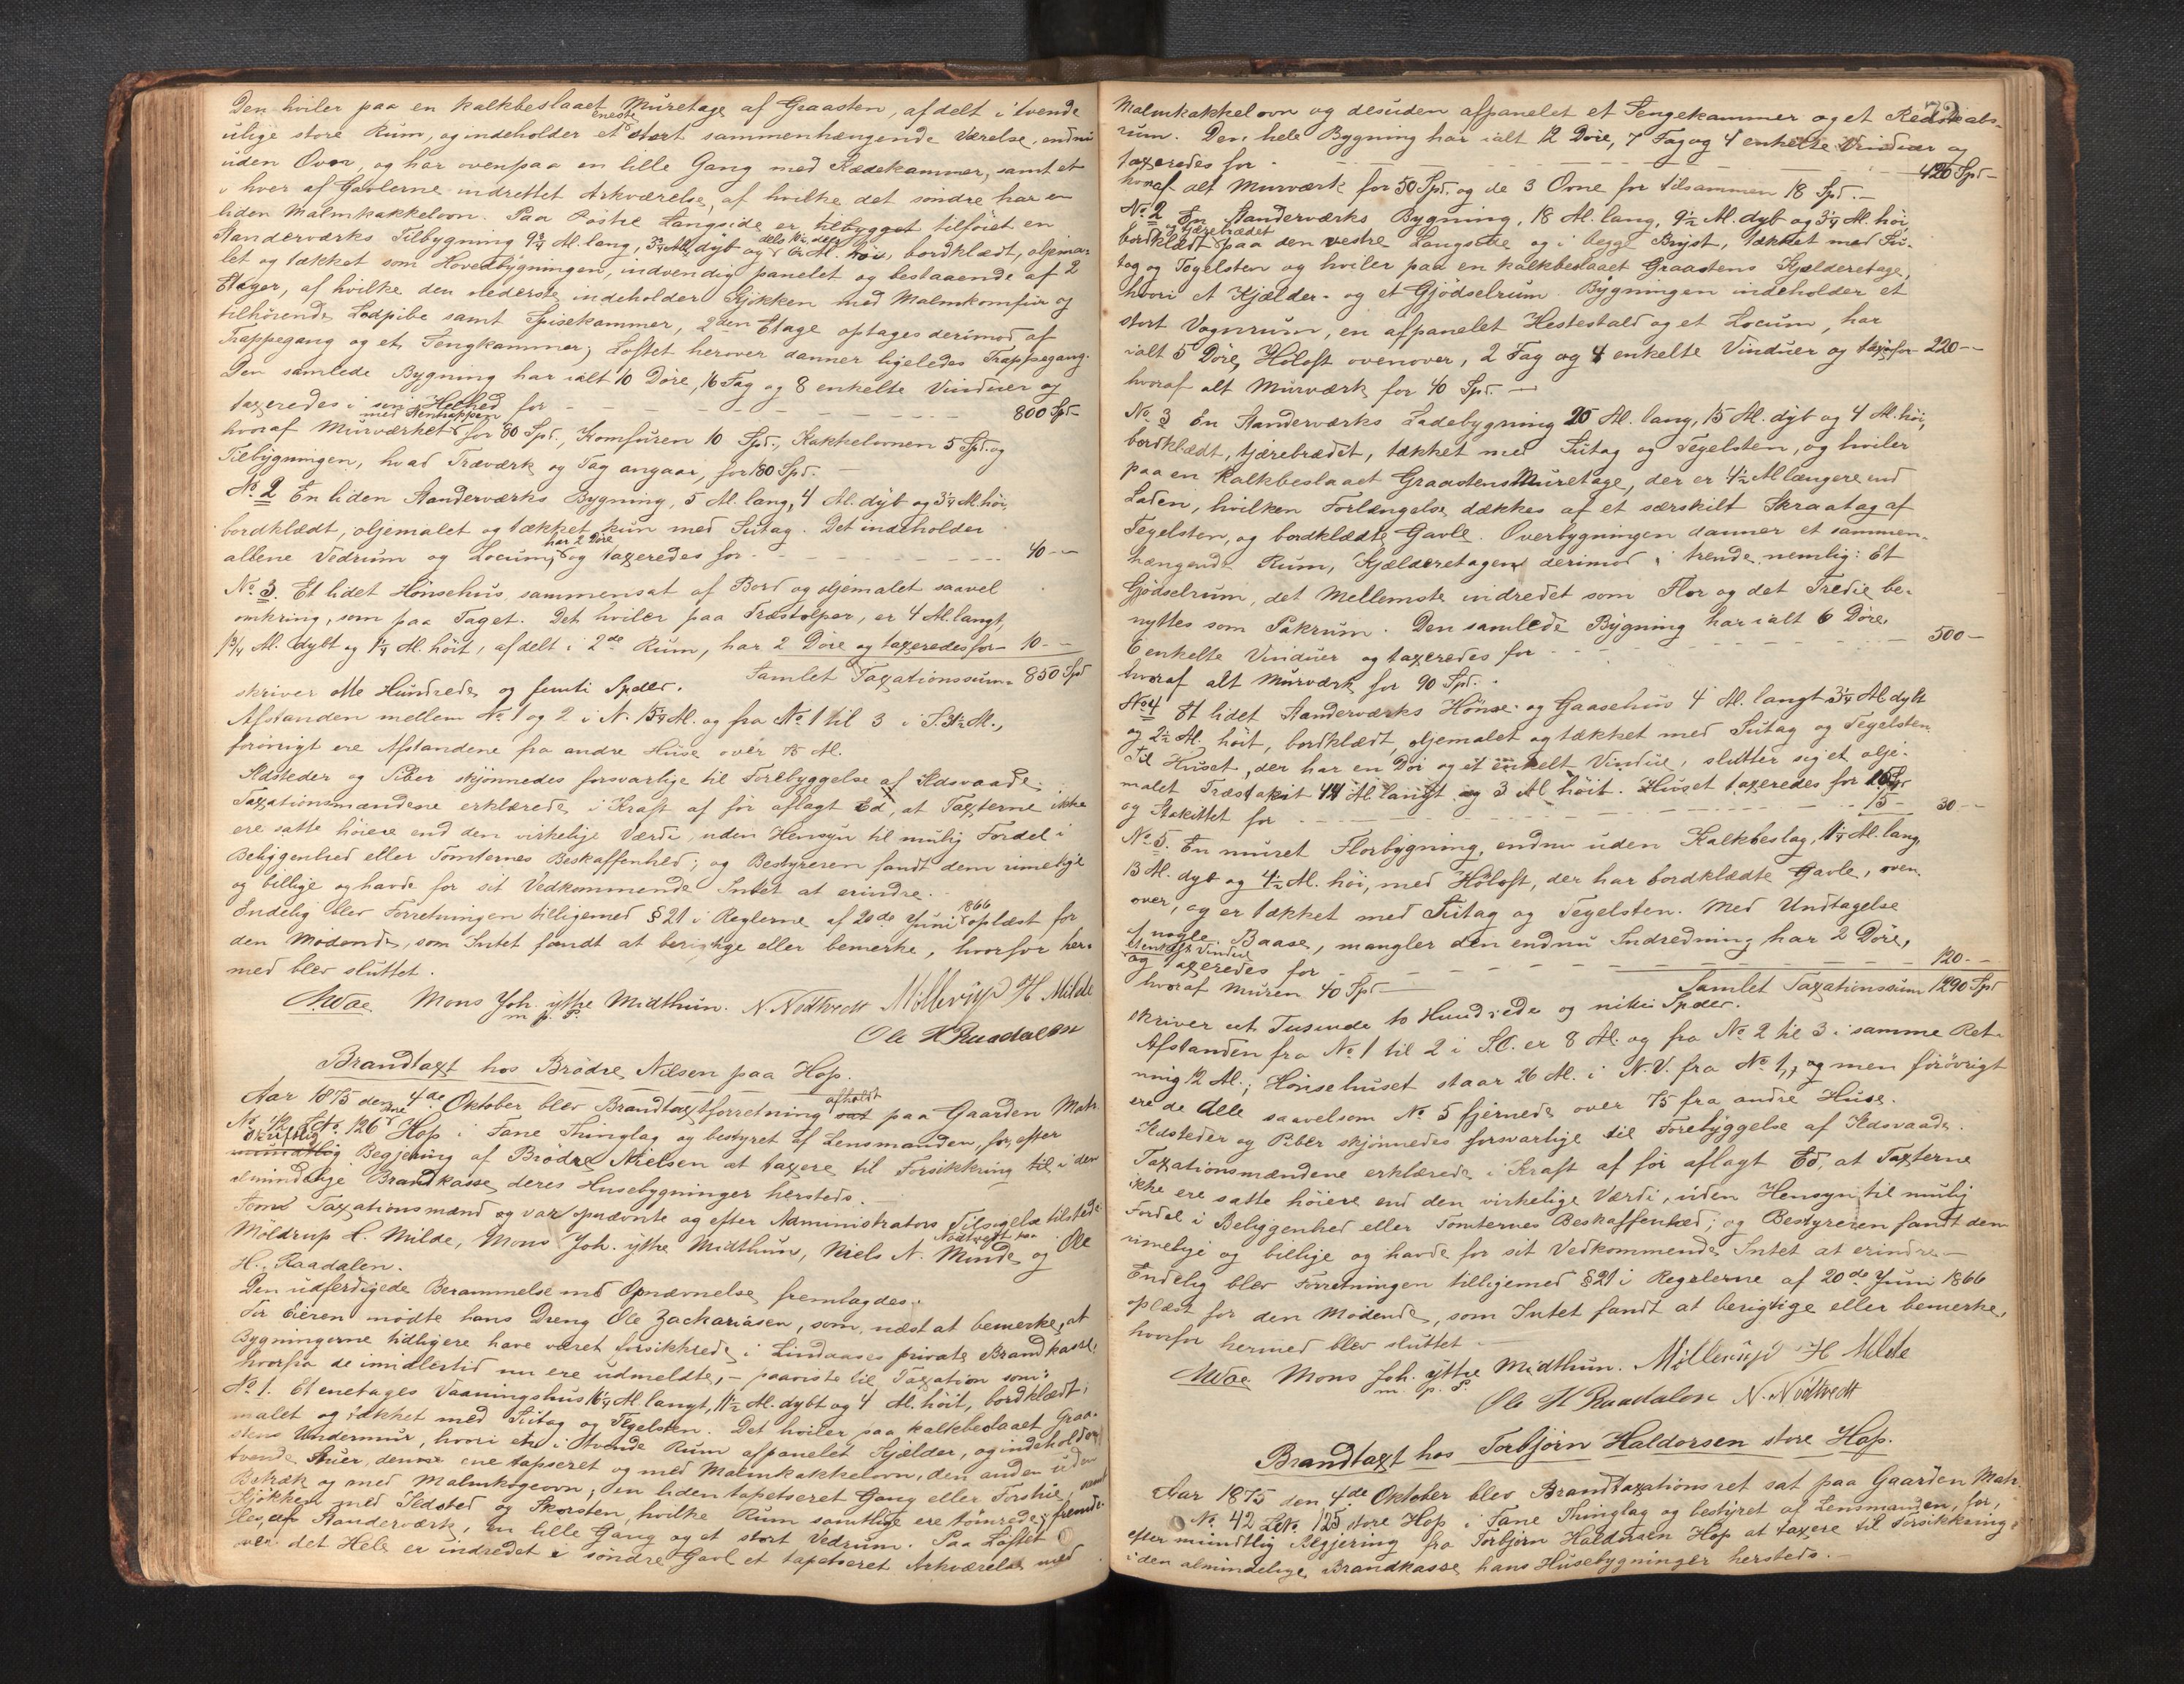 Den hviler paa en kalkbeslaaet Muretage af Graasten, afdelt i tvende
ulige store Rum, og indeholder et eneste stort sammenhængende Værelse, endnu
uden Ovn, og har ovenpaa en lille Gang med Klædekammer, samt et
i hver af Gavlerne indrettet Arkværelse, af hvilke det søndre har en
liden Malmkakkelovn. Paa Østre Langside er tilbygget tilføiet en
Standerværks Tilbygning 9 3/4 Al. lang, 3 3/4 Al. dyb og Al. høi, bordklædt, oljema-
let og tækket som Hovedbygningen, indvendig panelet og bestaaende af 2
Etager, af hvilke den nederste indeholder Kjøkken med Malmkomfur og
tilhørende Lodpibe samt Spisekammer, 2den Etage optages derimod af
Trappegang og et Sengkammer; Loftet herover danner ligeledes Trappegang.
Den samlede Bygning har ialt 10 Døre, 16 Fag og 8 enkelte Vinduer og
taxeredes i sin Helhed for — 800 Spd
hvoraf Murværket med Stentrappen for 80 Spd., Komfuren 10 Spd., Kakkelovnen 5 Spd. og
Tilbygningen, hvad Træværk og Tag angaar, for 180 Spd.
No. 2 En liden Standerværks Bygning, 5 Al. lang, 4 Al. dyb og 3 1/4 Al. høi,
bordklædt, oljemalet og tækket kun med Sutag. Det indeholder
allene Vedrum og Locum, har 2 Døre og taxeredes for — 40 —
No. 3. Et lidet Hønsehus, sammensat af Bord og oljemalet saavel
omkring, som paa Taget. Det hviler paa Træstolper, er 4 Al. langt,
1 3/4 Al. dybt og 1 3/4 Al. høit, afdelt i 2de Rum, har 2 Døre og taxeredes for 10 —
Samlet Taxationssum 850 Spd
skriver otte Hundrede og femti Spdlr.
Afstanden mellem No. 1 og 2 i N. 15 1/4 Al. og fra No. 1 til 3 i S. 31 1/2 Al.,
forøvrigt ere Afstandene fra andre Huse over 75 Al.
Ildsteder og Piber skjønnedes forsvarlige til Forebyggelse af Ildsvaade.
Taxationsmændene erklærede i Kraft af før aflagt Ed, at Taxterne ikke
ere satte høiere end den virkelige Værdi, uden Hensyn til mulig Fordel i
Beliggenhed eller Tomternes Beskaffenhed; og Bestyreren fandt dem rimelige
og billige og havde for sit Vedkommende Intet at erindre.
Endelig blev Forretningen tilligemed § 21 i Reglerne af 20de Juni 1866 oplæst for
den Mødende, som Intet fandt at berigtige eller bemerke, hvorfor her-
med blev sluttet.
Mons Joh. ytre Midthun. N. Nødtvedt Møllerup H. Milde
m. p. P.
Ole H Raadalen
Brandtaxt hos Brødre Nilsen paa Hop.
Aar 1875 den 4de Oktober blev Brandtaxtforretning afholdt sat paa Gaarden Matr.
No. 42 Lb No. 126 Hop i Fane Thinglag og bestyret af Lensmanden, for, efter
skriftlig mundtlig Begjæring af Brødre Nielsen at taxere til Forsikkring til i den
almindelige Brandkasse deres Husebygninger hersteds.
Som Taxationsmænd og var opnævnte og efter Administrators Tilsigelse tilstede
Møldrup H. Milde, Mons Joh. ytre Midthun, Niels N. Nødtvedt paa Minde og Ole
H. Raadalen.
Den udferdigede Berammelse med Opnævnelse fremlagdes.
For Eieren mødte hans Dreng Ole Zachariasen, som, næst at bemerke, at
Bygningerne tidligere have været forsikkrede i Lindaases private Brandkasse,
hvorfra de imidlertid nu ere udmeldte, — paaviste til Taxation som:
No. 1. Et enetages Vaaningshus 16 1/4 Al. langt, 11 1/2 Al. dybt og 4 Al. høit, bordklædt,
malet og tækket med Sutag og Tegelsten. Det hviler paa kalkbeslaaet Graa-
stens Undermur, hvori et i tvende Rum afpanelet Kjælder, og indeholder
tvende Stuer, den ene tapseret og med Malmkakkelovn, den anden uden
Betræk og med Malmkogeovn; en liden tapetseret Gang eller Forstue, samt
Kjøkken med Ildsted og Skorsten, hvilke Rum samtlige ere tømrede; fremde-
les, af Standerværk, en lille Gang og et stort Vedrum. Paa Loftet
over det Hele er indredet i søndre Gavl et tapetseret Arkværelse med
72
Malmkakkelovn og desuden afpanelet et Sengekammer og et Redskabs-
rum. Den hele Bygning har ialt 12 Døre, 7 Fag og 4 enkelte Vinduer og
taxeredes for — 420 Spd
hvoraf alt Murværk for 50 Spd. og de 3 Ovne for tilsammen 18 Spd.
No. 2 En Standerværks Bygning, 18 Al. lang, 9 1/2 Al. dyb og 3 1/4 Al. høi,
bordklædt og tjærebrædet paa den vestre Langside og i begge Bryst, tækket med Su-
tag og Tegelsten og hviler paa en kalkbeslaaet Graastens Kjælderetage,
hvori et Kjælder- og et Gjødselrum. Bygningen indeholder et
stort Vognrum, en afpanelet Hestestald og et Locum, har
ialt 5 Døre, Høloft ovenover, 2 Fag og 4 enkelte Vinduer og tax. for 220 —
hvoraf alt Murværk for 40 Spd. —
No. 3 En Standerværks Ladebygning 20 Al. lang, 15 Al. dyb og 4 Al. høi,
bordklædt, tjærebrædet, tækket med Sutag og Tegelsten, og hviler
paa en kalkbeslaaet Graastens Muretage, der er 4 1/2 Al længere end
Laden, hvilken Forlængelse dækkes af et særskilt Skraatag af
Tegelsten, og bordklædte Gavle. Overbygningen danner et sammen-
hængende Rum, Kjælderetagen derimod i trende, nemlig: Et
Gjødselrum, det Mellemste indredet som Flor og det Tredie be-
nyttes som Pakrum. Den samlede Bygning har ialt 6 Døre,
6 enkelte Vinduer og taxeredes for — 500 —
hvoraf alt Murværk for 90 Spd.
No. 4 Et lidet Standerværks Hønse- og Gaasehus 4 Al. langt 3 1/4 Al. dybt
og 2 1/2 Al. høit, bordklædt, oljemalet og tækket med Sutag og Tegelsten.
Til Huset, der har en Dør og et enkelt Vindue, slutter sig et olje-
malet Træstakit 44 Al. langt og 3 Al høit. Huset taxeredes for 15 Spd
og Stakittet for — 15 — 30 —
No. 5. En muret Florbygning, endnu uden Kalkbeslag, 11 1/4 Al. lang,
13 Al. dyb og 4 1/2 Al. høi, med Høloft, der har bordklædte Gavle, oven-
over, og er tækket med Sutag og Tegelsten. Med Undtagelse
af nogle Baase, mangler den endnu Indredning, har 2 Døre,
1 enkelt Vindue og taxeredes for — 120 —
hvoraf Muren 40 Spd — Samlet Taxationssum 1290 Spd
skriver et Tusinde to Hundrede og nitti Spdlr.
Afstanden fra No. 1 til 2 i S.O. er 8 Al. og fra No. 2 til 3 i samme Ret-
ning 12 Al.; Hønsehuset staar 26 Al. i N.V. fra No. 1, og men forøvrigt
ere de Alle saavelsom No. 5 fjernede over 75 fra andre Huse.
Ildsteder og Piber skjønnedes forsvarlige til Forebyggelse af Ildsvaade.
Taxationsmændene erklærede i Kraft af før aflagt Ed, at Taxterne
ikke ere satte høiere end den virkelige Værdi, uden Hensyn til mulig
Fordel i Beliggenhed eller Tomternes Beskaffenhed; og Bestyreren fandt dem
rimelige og billige og havde for sit Vedkommende Intet at erindre. —
Endelig blev Forretningen tilligemed § 21 i Reglerne af 20de Juni 1866
oplæst for den Mødende, som Intet fandt at berigtige eller bemerke,
hvorfor hermed blev sluttet.
Mons Joh. ytre Midthun. Møllerup H Milde
m. p. P.
Ole H Raadalen N. Nødtvedt
Brandtaxt hos Torbjørn Haldorsen store Hop.
Aar 1875 den 4de Oktober blev Brandtaxationsret sat paa Gaarden Matr.
No. 42 Lb No. 125, store Hop i Fane Thinglag og bestyret af Lensmanden, for,
efter mundtlig Begjæring fra Torbjørn Haldorsen Hop at taxere til Forsikkring
i den almindelige Brandkasse hans Husebygninger hersteds. —